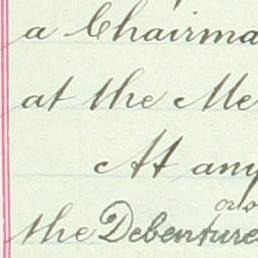 a Chairma
at the Me
At any
the Debenture